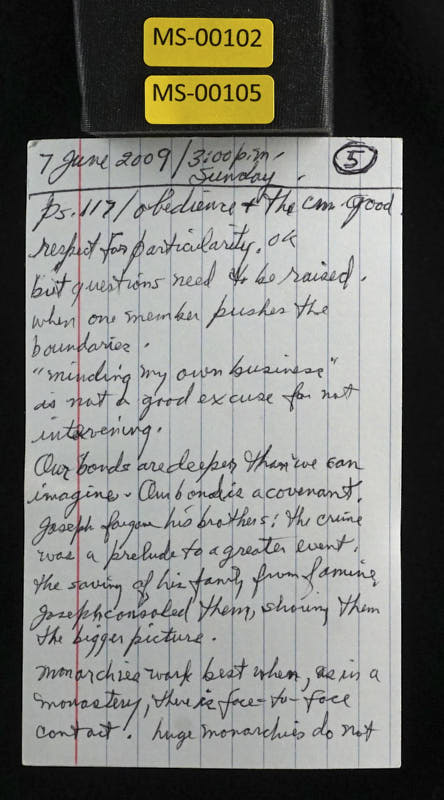 MS-00102
MS-00105
7 June 2009/3:00 p.m.
Sunday.
5
Ps. 117/obedience & the cm. good.
respect for particularity. OK
but questions need to be raised.
when one member pushes the
boundaries.
"minding my own business"
is not a good excuse for not
intervening.
Our bonds are deeper than we can
imagine. Our bond is a covenant.
Joseph forgave his brothers: the crime
was a prelude to a greater event.
the saving of his family from famine
Joseph consoled them, showing them
the bigger picture.
Monarchies work best when, as in a
monastery, there is face-to-face
contact. huge monarchies do not